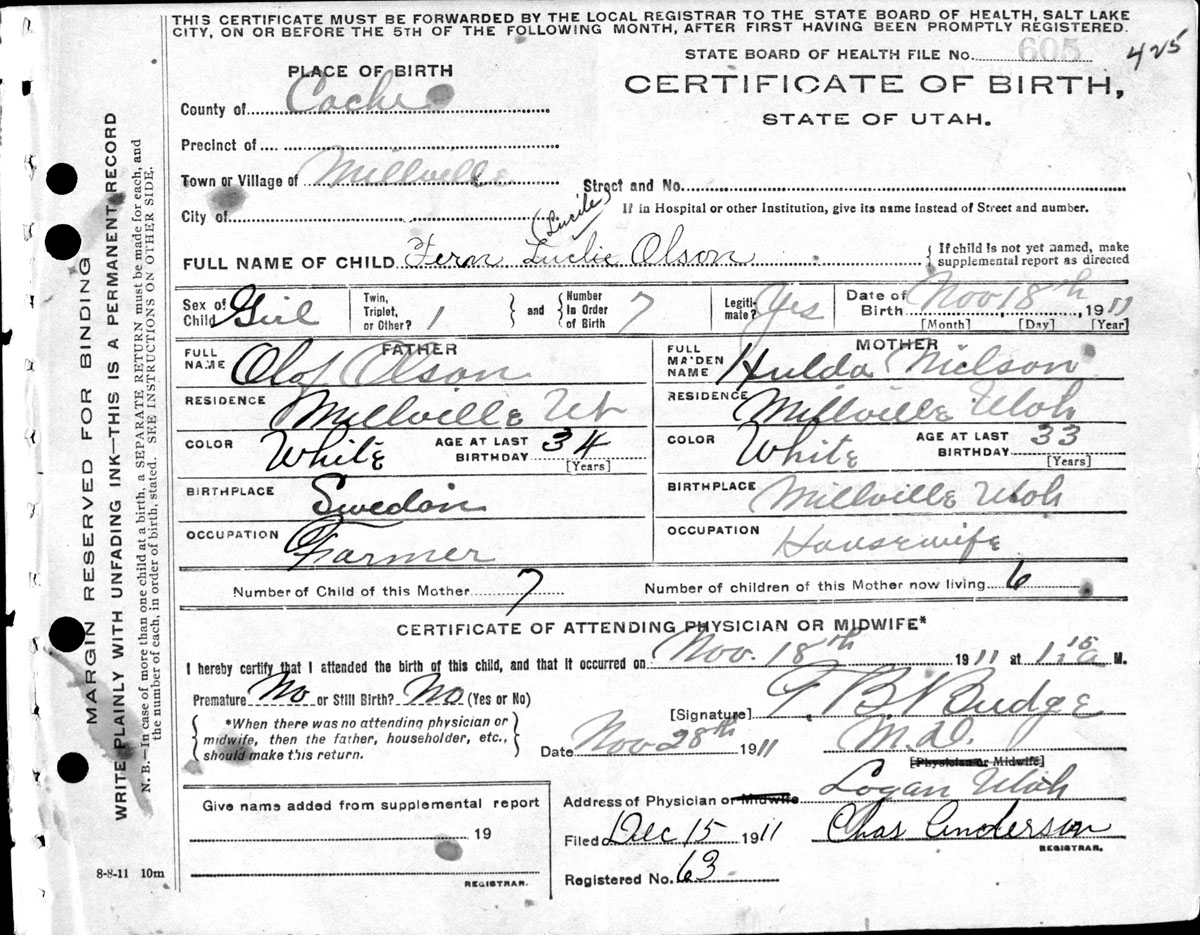 THIS CERTIFICATE MUST BE FORWARDED BY THE LOCAL REGISTRAR TO THE STATE BOARD OF HEALTH, SALT LAKE
CITY, ON OR BEFORE THE 5TH OF THE FOLLOWING MONTH, AFTER FIRST HAVING BEEN PROMPTLY REGISTERED.
STATE BOARD OF HEALTH FILE No. 605 425
PLACE OF BIRTH
CERTIFICATE OF BIRTH,
STATE OF UTAH.
County of Cache
Precinct of
Town or Village of Millville
Street and No.
City of
If in Hospital or other Institution, give its name instead of Street and number.
(Lucile)
FULL NAME OF CHILD Fern Luclie Olson
{If child is not yet named, make
supplemental report as directed
Sex of Child Girl
Twin, Triplet, or Other? 1 } and { Number In Order of Birth 7
Legiti-mate? Yes
Date of Birth Nov 18th, 1911
[Month] [Day] [Year]
FATHER
FULL NAME Olof Olson
RESIDENCE Millville Ut
COLOR White AGE AT LAST BIRTHDAY 34
[Years]
BIRTHPLACE Swedan
OCCUPATION Farmer
MOTHER
FULL MAIDEN NAME Hulda Nielson
RESIDENCE Millville Utah
COLOR White AGE AT LAST BIRTHDAY 33
[Years]
BIRTHPLACE Millville Utah
OCCUPATION Housewife
Number of Child of this Mother 7 Number of children of this Mother now living 6
CERTIFICATE OF ATTENDING PHYSICIAN OR MIDWIFE*
I hereby certify that I attended the birth of this child, and that it occurred on Nov. 18th 1911 at 1:15 a M.
Premature No or Still Birth? No (Yes or No)
{*When there was no attending physician or
midwife, then the father, householder, etc.,
should make this return.}
[Signature] T B Budge
Date Nov 28th 1911 M.D.
[Physician or Midwife]
Address of Physician or Midwife Logan Utah
Filed Dec 15 1911 Chas Anderson
REGISTRAR.
Registered No. 63
Give name added from supplemental report
19
REGISTRAR.
8-8-11 10m
MARGIN RESERVED FOR BINDING
WRITE PLAINLY WITH UNFADING INK—THIS IS A PERMANENT RECORD
N. B.—In case of more than one child at a birth, a SEPARATE RETURN must be made for each, and
the number of each, in order of birth, stated. SEE INSTRUCTIONS ON OTHER SIDE.